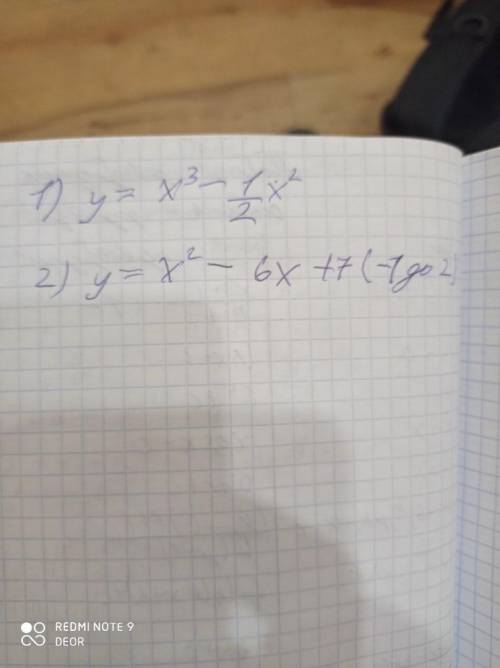 1) y = x³ - 1/2 x²
2) y = x² - 6x + 7 (-1 до 2)
REDMI NOTE 9
DEOR